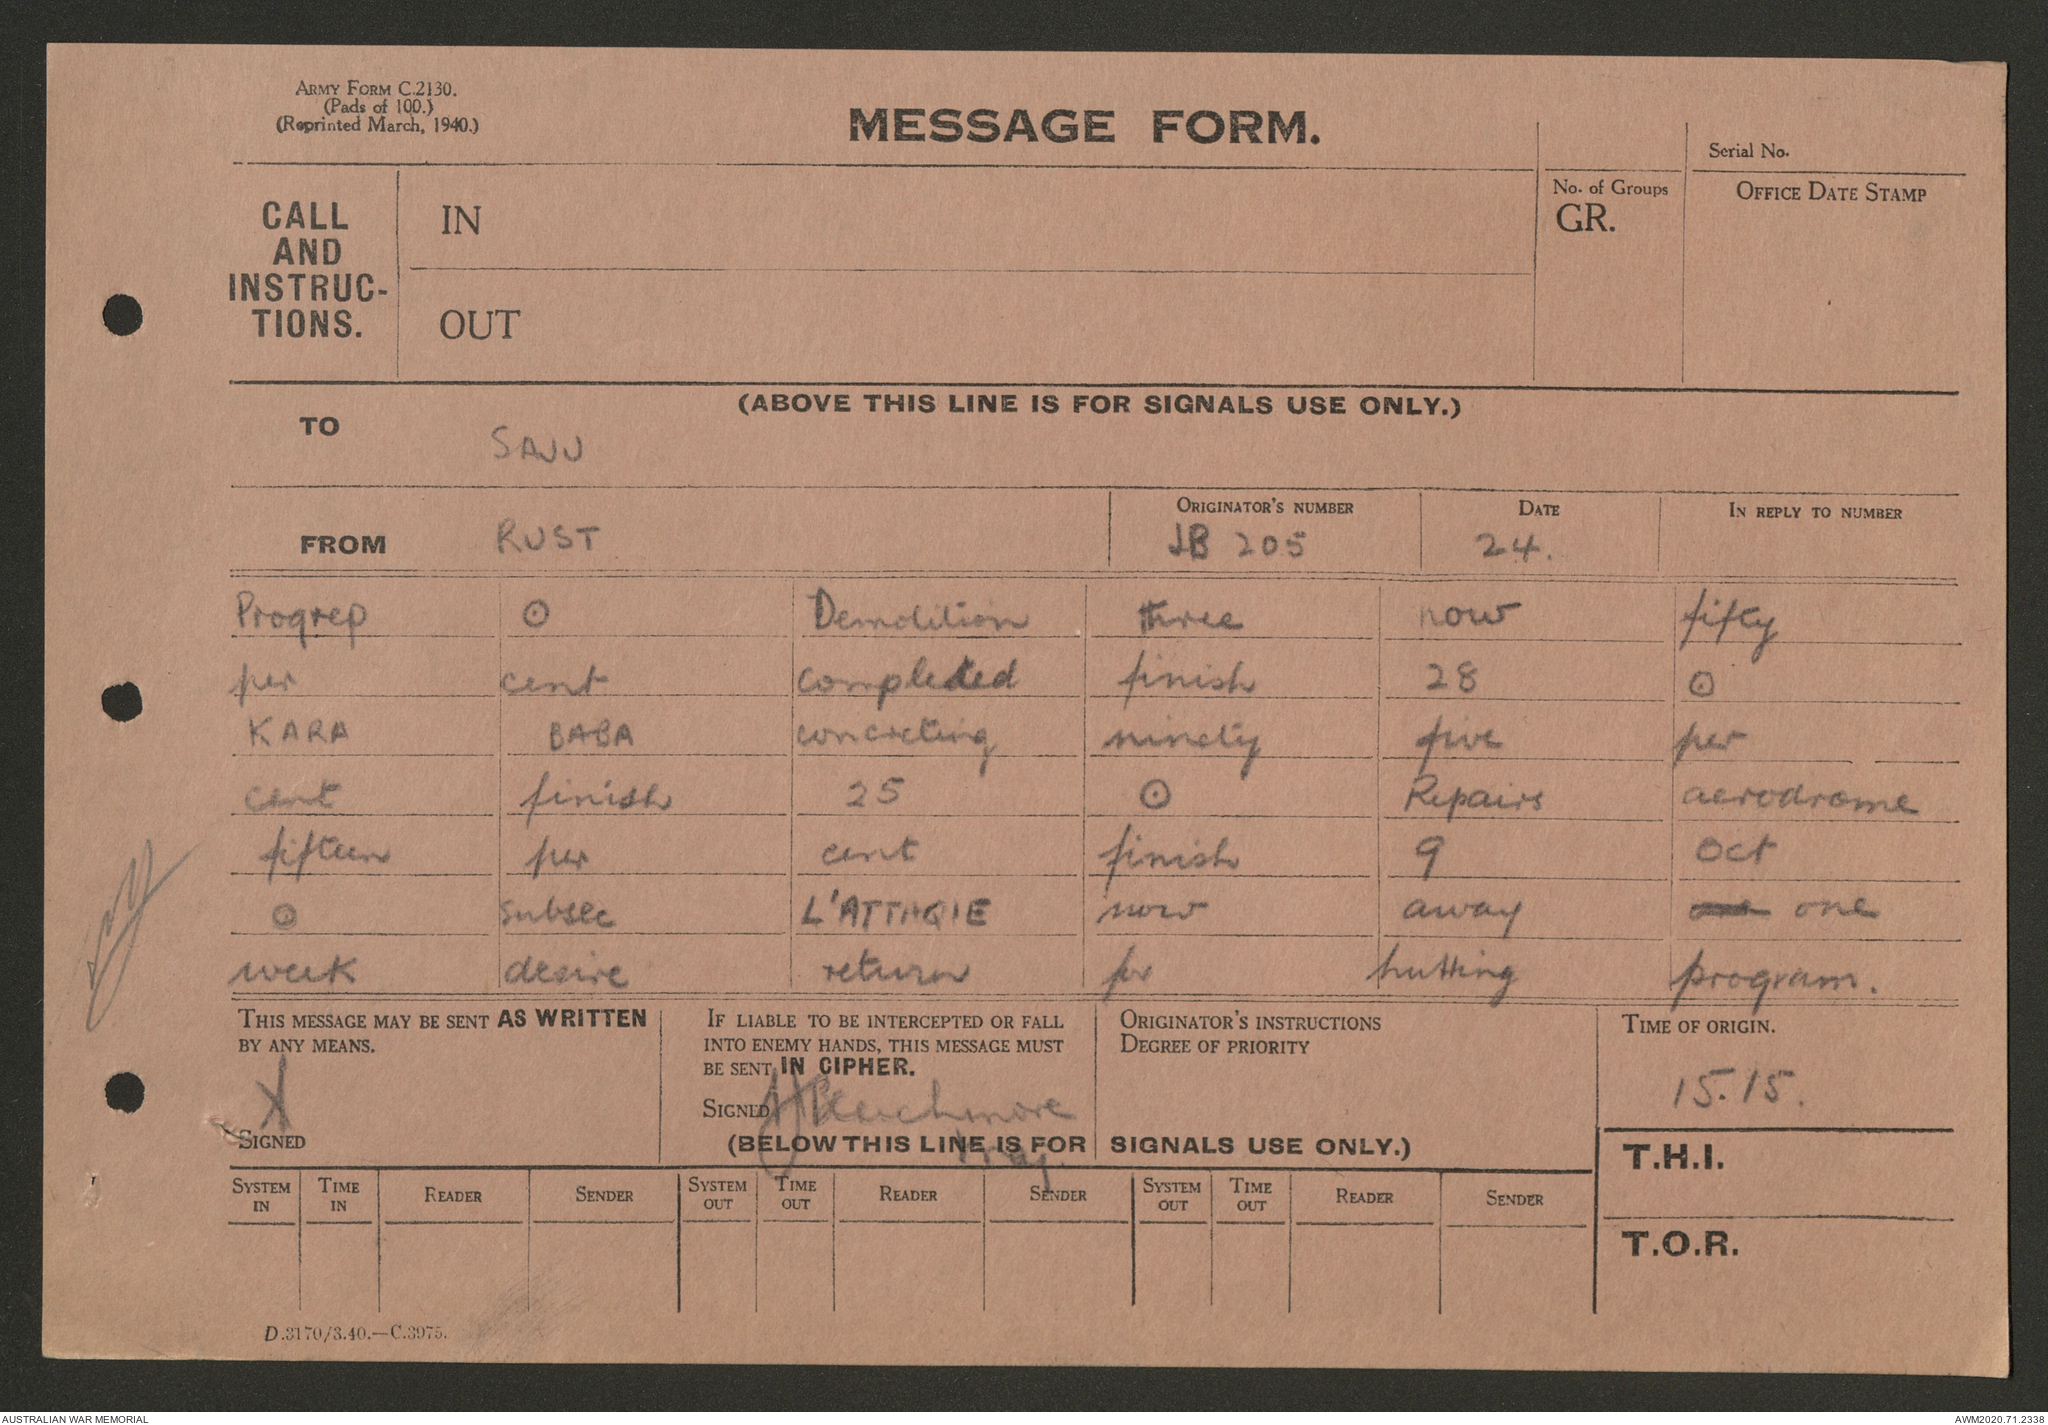 ARMY FORM C.2130.
(Pads of 100.)
(Reprinted March, 1940.)
MESSAGE FORM.
Serial No.
CALL AND INSTRUC-TIONS.
IN
No. of Groups
GR.
OFFICE DATE STAMP
OUT
(ABOVE THIS LINE IS FOR SIGNALS USE ONLY.)
TO SAJJ
FROM RUST
ORIGINATOR'S NUMBER JB 205
DATE 24.
IN REPLY TO NUMBER
Progrep ⊙ Demolition three now fifty
per cent completed finish 28 ⊙
KARA BABA concreting ninety five per
cent finish 25 ⊙ Repairs aerodrome
fifteen per cent finish 9 Oct
⊙ subsec L'ATTAQUE now away one
week desire return for hutting program.
THIS MESSAGE MAY BE SENT AS WRITTEN
BY ANY MEANS.
X
SIGNED
IF LIABLE TO BE INTERCEPTED OR FALL
INTO ENEMY HANDS, THIS MESSAGE MUST
BE SENT IN CIPHER.
SIGNED
ORIGINATOR'S INSTRUCTIONS
DEGREE OF PRIORITY
TIME OF ORIGIN.
15.15.
(BELOW THIS LINE IS FOR SIGNALS USE ONLY.)
T.H.I.
SYSTEM IN TIME IN READER SENDER SYSTEM OUT TIME OUT READER SENDER SYSTEM OUT TIME OUT READER SENDER
T.O.R.
D.3170/3.40.—C.3975.
AUSTRALIAN WAR MEMORIAL
AWM2020.71.2338